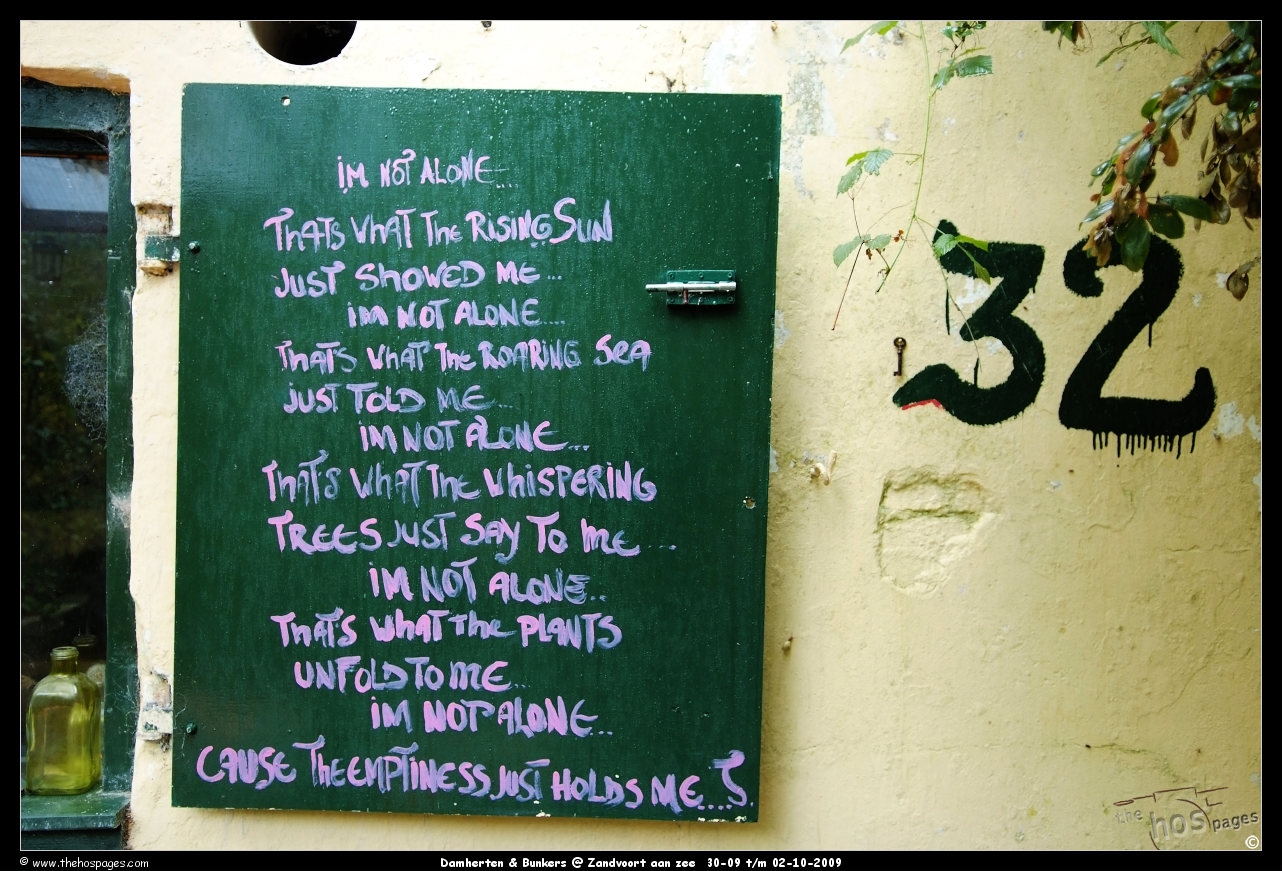 iM NOT ALONE....
THATS WHAT THE RISING SUN
JUST SHOWED ME...
iM NOT ALONE....
THAT'S WHAT THE ROARING SEA
JUST TOLD ME...
iM NOT ALONE...
THAT'S WHAT THE WHiSPERiNG
TREES JUST SAY TO ME....
iM NOT ALONE..
THAT'S WHAT THE PLANTS
UNFOLD TO ME...
iM NOT ALONE..
CAUSE THE EMPTINESS JUST HOLDS ME...
32
the hos pages
©
© www.thehospages.com
Damherten & Bunkers @ Zandvoort aan zee 30-09 t/m 02-10-2009